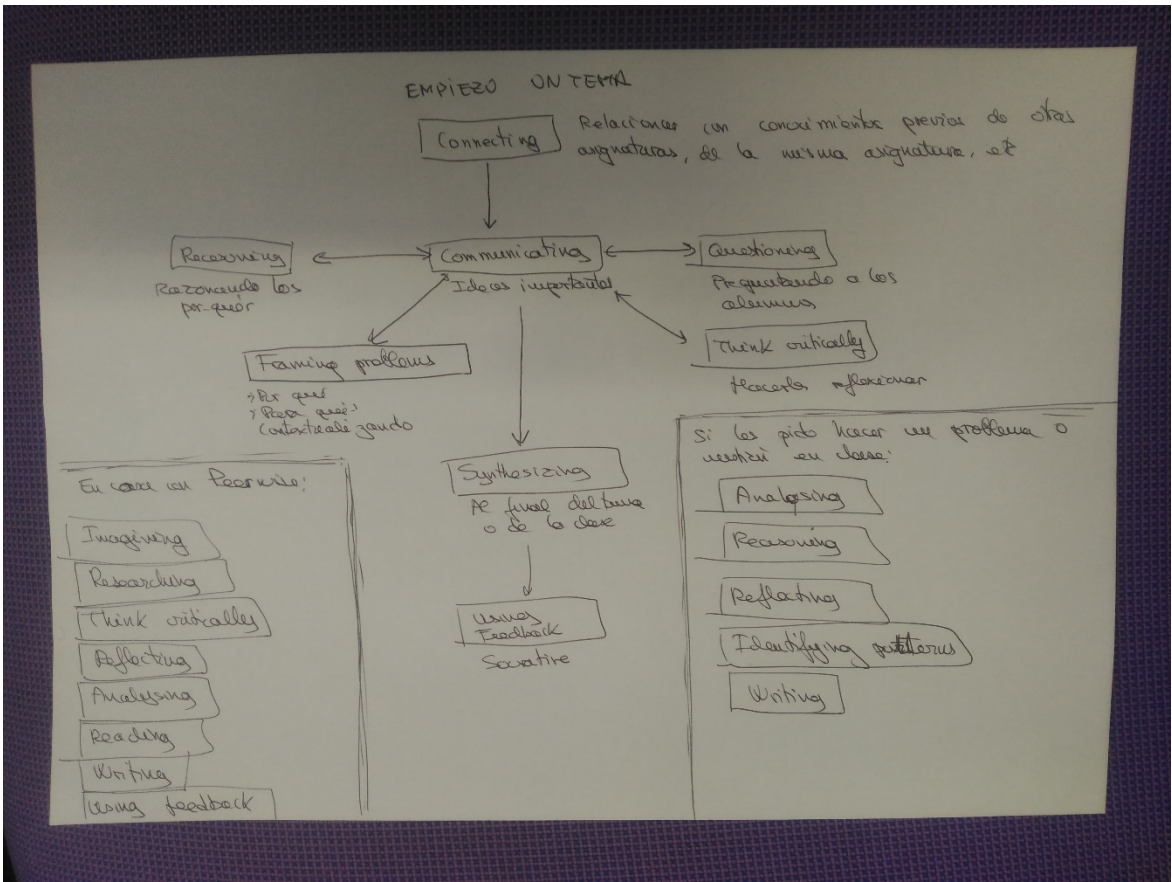 EMPIEZO UN TEMA
Connecting
Relacionar con conocimientos previos de otras
asignaturas, de la misma asignatura, etc
Reasoning
Razonando los
por-qués
Communicating
Ideas importantes
Questioning
Preguntando a los
alumnos
Think critically
Hacerles reflexionar
Framing problems
> Por qué
> Para qué?
Contextualizando
Synthesizing
Al final del tema
o de la clase
Using
Feedback
Socrative
En casa con Peerwise:
Imagining
Researching
Think critically
Reflecting
Analysing
Reading
Writing
Using feedback
Si les pido hacer un problema o
en clase:
Analysing
Reasoning
Reflecting
Identifying patterns
Writing